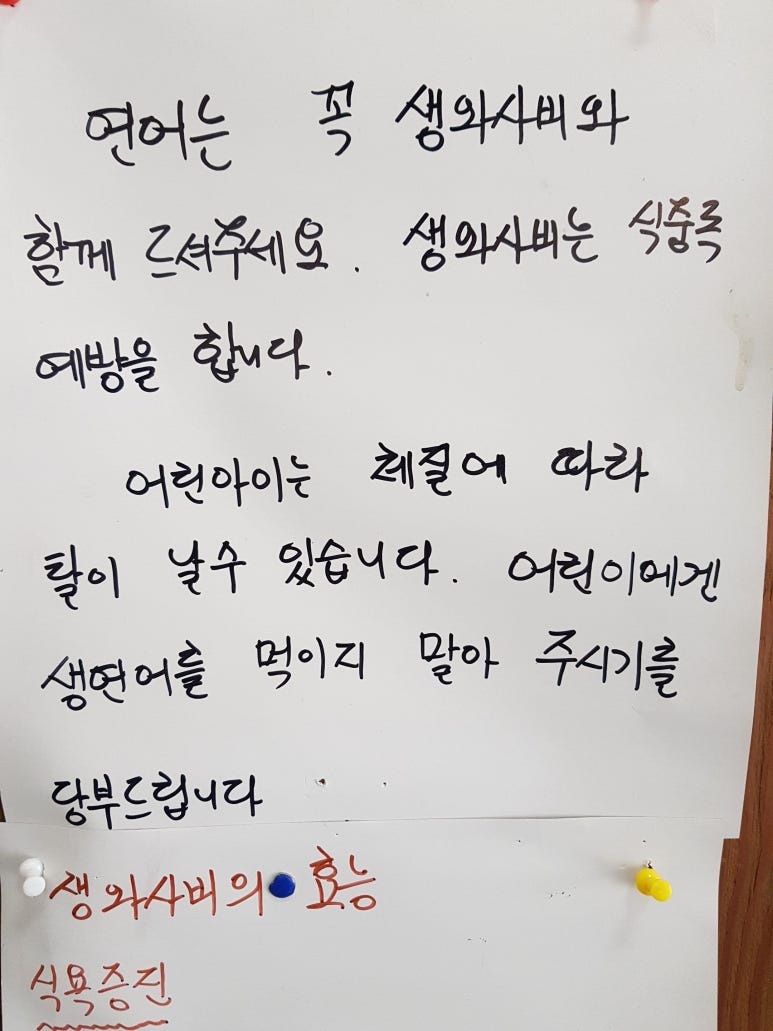 연어는 꼭 생와사비와
함께 드셔주세요. 생와사비는 식중독
예방을 합니다.
어린아이는 체질에 따라
탈이 날수 있습니다. 어린이에겐
생연어를 먹이지 말아 주시기를
당부드립니다
생와사비의 효능
식욕증진